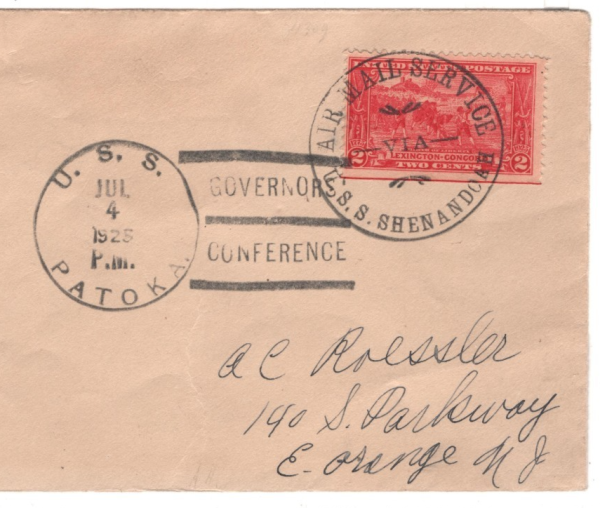 UNITED STATES POSTAGE
AIR MAIL SERVICE
VIA
U.S.S. SHENANDOAH
2 LEXINGTON-CONCORD 2
TWO CENTS
U. S. S.
JUL
4
1925
P.M.
PATOKA
GOVERNORS
CONFERENCE
A C Roessler
140 S. Parkway
E. Orange N J